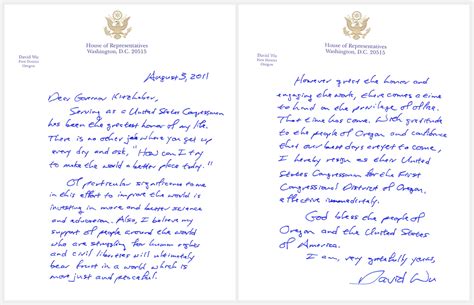 House of Representatives
Washington, D.C. 20515
David Wu
First District
Oregon
August 3, 2011
Dear Governor Kitzhaber,
Serving as a United States Congressman
has been the greatest honor of my life.
There is no other job where you get up
every day and ask, "How can I try
to make the world a better place today."
Of particular significance to me
in this effort to improve the world is
investing in more and better science
and education. Also, I believe my
support of people around the world
who are struggling for human rights
and civil liberties will ultimately
bear fruit in a world which is
more just and peaceful.
House of Representatives
Washington, D.C. 20515
David Wu
First District
Oregon
However great the honor and
engaging the work, there comes a time
to hand on the privilege of office.
That time has come. With gratitude
to the people of Oregon and confidence
that our best days are yet to come,
I hereby resign as their United
States Congressman for the First
Congressional District of Oregon,
effective immediately.
God bless the people of
Oregon and the United States
of America.
I am, very gratefully yours,
David Wu